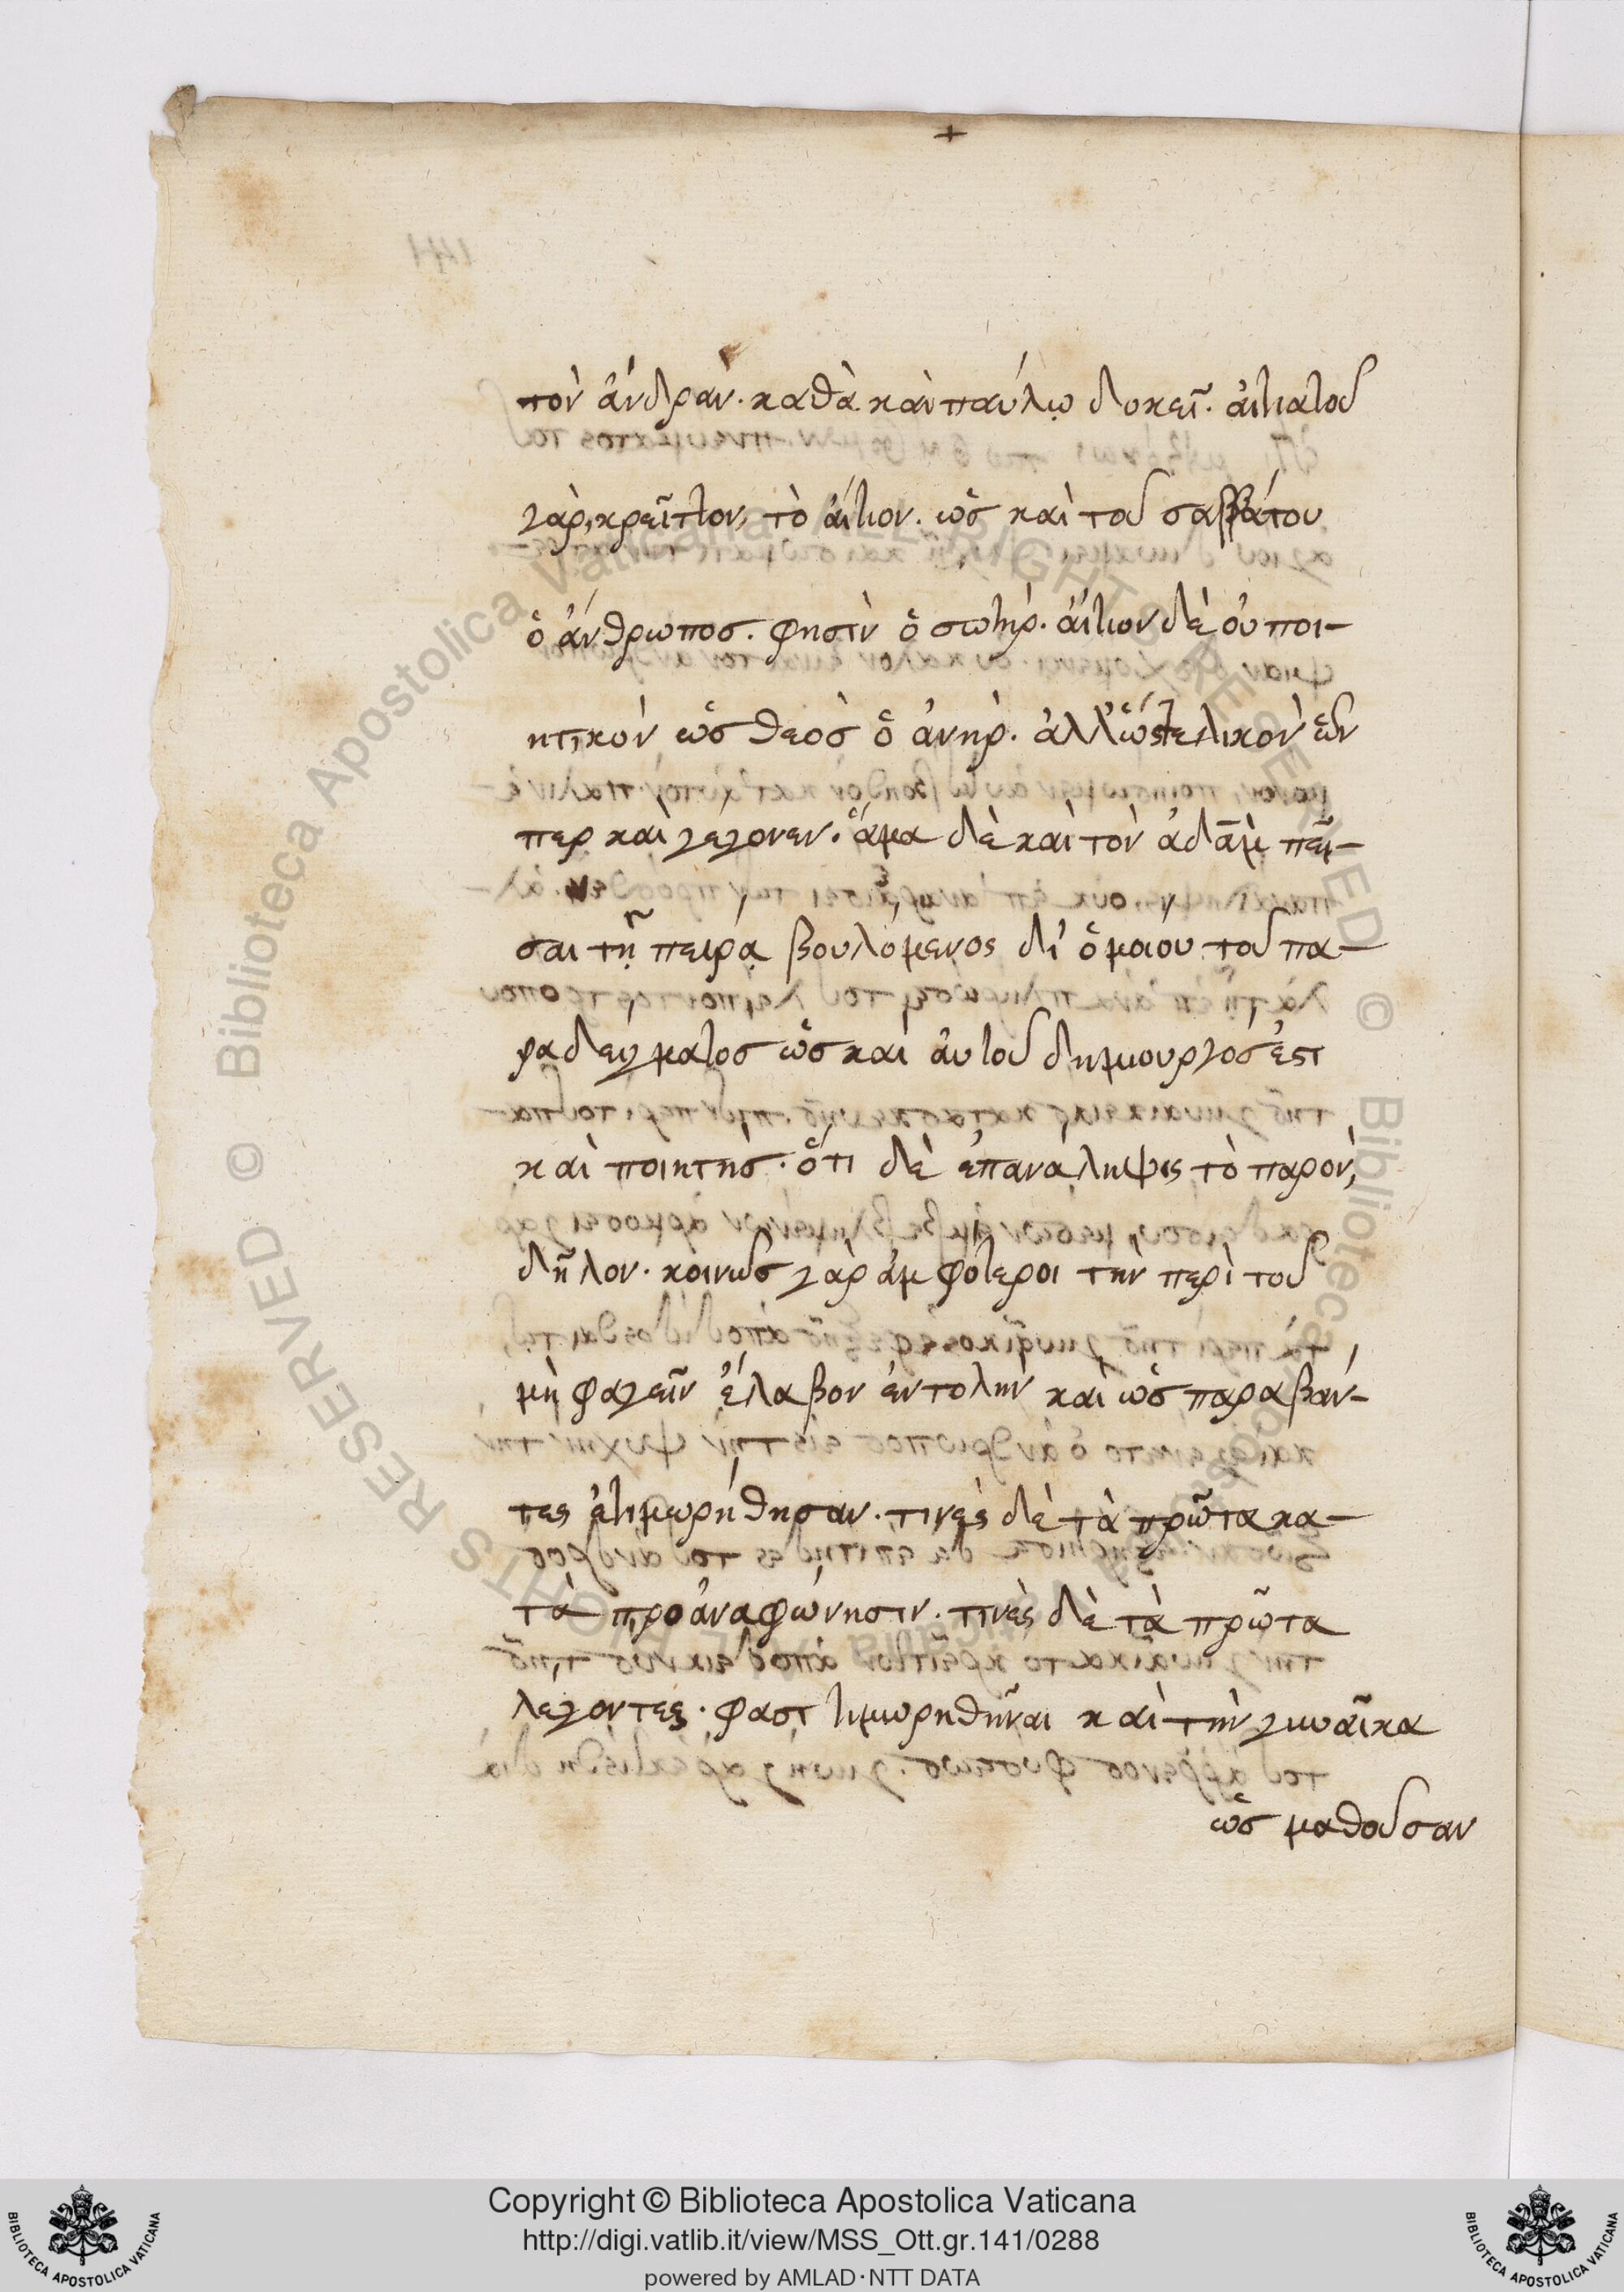 +
τὸν ἄνδραν. καθὰ κἀν παύλῳ δοκεῖ. αἰτιατοῦ
γὰρ, κρεῖττον, τὸ αἴτιον. ὡς καὶ τοῦ σαββάτου
ὁ ἄνθρωπος. φησὶν ὁ σωτὴρ. αἴτιον δὲ οὐ ποι-
ητικὸν ὡς θεὸς ὁ ἀνὴρ. ἀλλ' ὡς τελικὸν ὧν
περ καὶ γέγονεν. ἅμα δὲ καὶ τὸν ἀδὰμ πεῖ-
σαι τῇ πείρᾳ βουλόμενος δι' ὁμοίου τοῦ πα-
ραδείγματος ὡς καὶ αὐτοῦ δημιουργὸς ἐστ
καὶ ποιητής. ὅτι δὲ ἐπανάληψις τὸ παρὸν,
δῆλον. κοινῶς γὰρ ἀμφότεροι τὴν περὶ τοῦ
μὴ φαγεῖν ἔλαβον ἐντολὴν καὶ ὡς παραβάν-
τες ἐτιμωρήθησαν. τινὲς δὲ τὰ πρῶτα κα-
τὰ προαναφώνησιν. τινὲς δὲ τὰ πρῶτα
λέγοντες. φασὶ τιμωρηθῆναι καὶ τὴν γυναῖκα
ὡς μαθοῦσαν
Biblioteca Apostolica Vaticana ALL RIGHTS RESERVED ©
Biblioteca Apostolica Vaticana ALL RIGHTS RESERVED ©
Copyright © Biblioteca Apostolica Vaticana
http://digi.vatlib.it/view/MSS_Ott.gr.141/0288
powered by AMLAD·NTT DATA
BIBLIOTECA APOSTOLICA VATICANA
BIBLIOTECA APOSTOLICA VATICANA